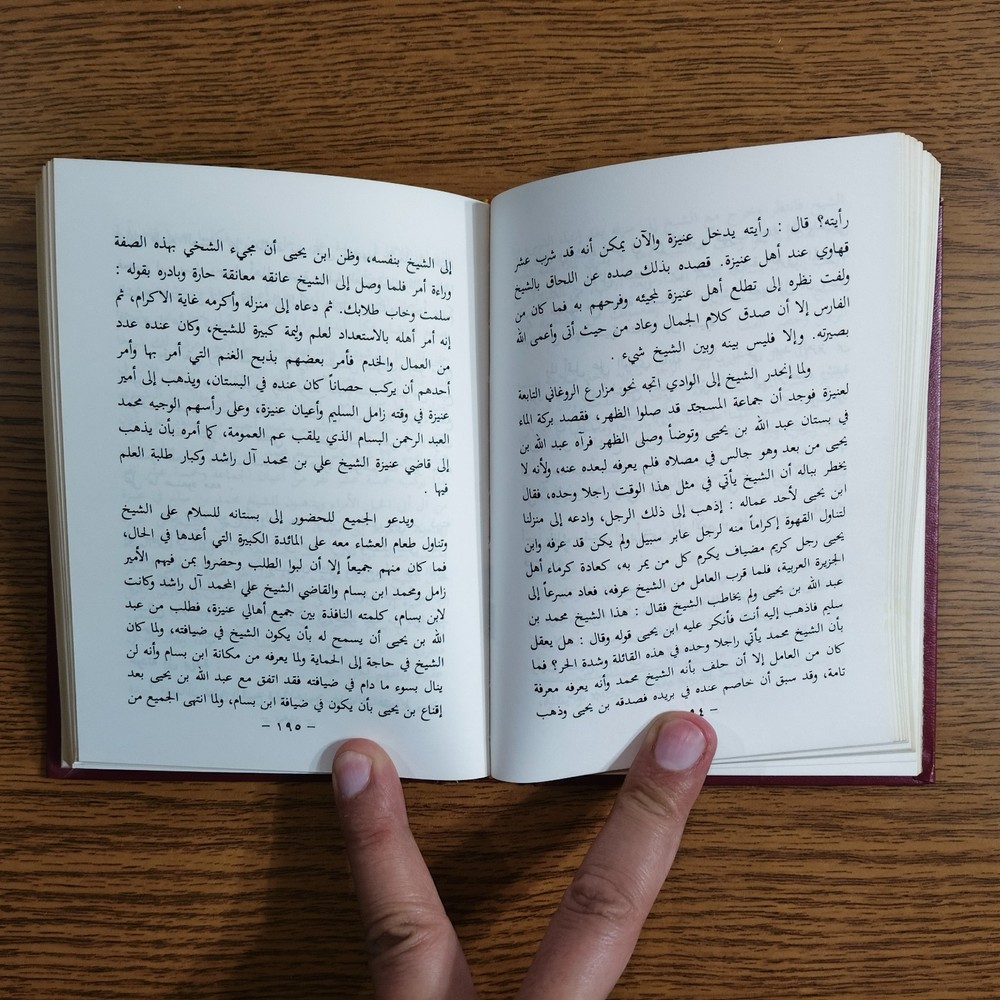 رأيته؟ قال : رأيته يدخل عنيزة والآن يمكن أنه قد شرب عشر
قهاوي عند أهل عنيزة. قصده بذلك صده عن اللحاق بالشيخ
ولفت نظره إلى تطلع أهل عنيزة لمجيئه وفرحهم به فما كان من
الفارس إلا أن صدق كلام الجمال وعاد من حيث أتى وأعمى الله
بصيرته. وإلا فليس بينه وبين الشيخ شيء .
ولما إنحدر الشيخ إلى الوادي اتجه نحو مزارع الروغاني التابعة
لعنيزة فوجد أن جماعة المسجد قد صلوا الظهر، فقصد بركة الماء
في بستان عبد الله بن يحيى وتوضأ وصلى الظهر فرآه عبد الله بن
يحيى من بعد وهو جالس في مصلاه فلم يعرفه لبعده عنه، ولأنه لا
يخطر بباله أن الشيخ يأتي في مثل هذا الوقت راجلا وحده، فقال
ابن يحيى لأحد عماله : إذهب إلى ذلك الرجل، وادعه إلى منزلنا
لتناول القهوة إكراماً منه لرجل عابر سبيل ولم يكن قد عرفه وابن
يحيى رجل كريم مضياف يكرم كل من يمر به، كعادة كرماء أهل
الجزيرة العربية، فلما قرب العامل من الشيخ عرفه، فعاد مسرعاً إلى
عبد الله بن يحيى ولم يخاطب الشيخ فقال : هذا الشيخ محمد بن
سليم فاذهب إليه أنت فأنكر عليه ابن يحيى قوله وقال : هل يعقل
بأن الشيخ محمد يأتي راجلا وحده في هذه القائلة وشدة الحر؟ فما
كان من العامل إلا أن حلف بأنه الشيخ محمد وأنه يعرفه معرفة
تامة، وقد سبق أن خاصم عنده في بريده فصدقه بن يحيى وذهب
٩٤ –
إلى الشيخ بنفسه، وظن ابن يحيى أن مجيء الشخي بهذه الصفة
وراءة أمر فلما وصل إلى الشيخ عانقه معانقة حارة وبادره بقوله :
سلمت وخاب طلابك. ثم دعاه إلى منزله وأكرمه غاية الاكرام، ثم
إنه أمر أهله بالاستعداد لعلم وليمة كبيرة للشيخ، وكان عنده عدد
من العمال والخدم فأمر بعضهم بذبح الغنم التي أمر بها وأمر
أحدهم أن يركب حصاناً كان عنده في البستان، ويذهب إلى أمير
عنيزة في وقته زامل السليم وأعيان عنيزة، وعلى رأسهم الوجيه محمد
العبد الرحمن البسام الذي يلقب عم العمومة، كما أمره بأن يذهب
إلى قاضي عنيزة الشيخ علي بن محمد آل راشد وكبار طلبة العلم
فيها .
ويدعو الجميع للحضور إلى بستانه للسلام على الشيخ
وتناول طعام العشاء معه على المائدة الكبيرة التي أعدها في الحال،
فما كان منهم جميعاً إلا أن لبوا الطلب وحضروا بمن فيهم الأمير
زامل ومحمد ابن بسام والقاضي الشيخ علي المحمد آل راشد وكانت
لابن بسام، كلمته النافذة بين جميع أهالي عنيزة، فطلب من عبد
الله بن يحيى أن يسمح له بأن يكون الشيخ في ضيافته، ولما كان
الشيخ في حاجة إلى الحماية ولما يعرفه من مكانة ابن بسام وأنه لن
ينال بسوء ما دام في ضيافته فقد اتفق مع عبد الله بن يحيى بعد
إقناع بن يحيى بأن يكون في ضيافة ابن بسام، ولما انتهى الجميع من
– ١٩٥ –